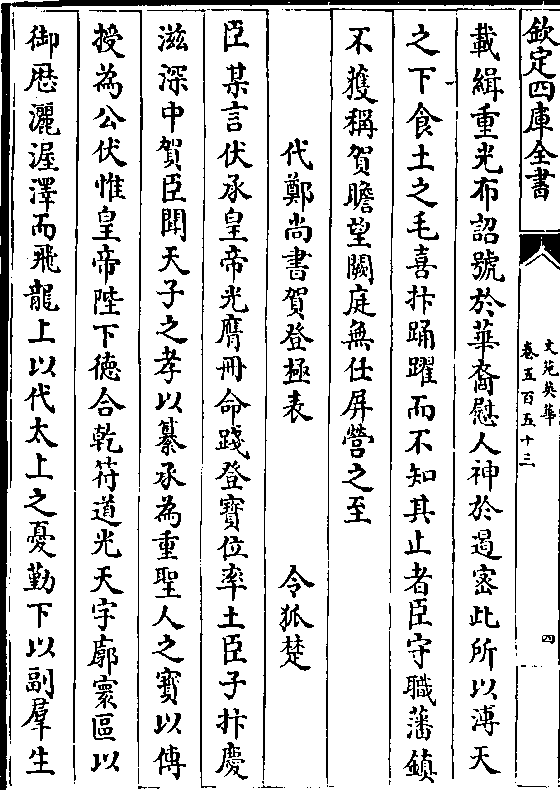 欽定四庫全書
文苑英華
卷五百五十三
四
載緝重光布詔號於華裔慰人神於遏密此所以溥天
之下食土之毛喜抃踊躍而不知其止者臣守職藩鎮
不獲稱賀瞻望闕庭無任屏營之至
代鄭尚書賀登極表 令狐楚
臣某言伏承皇帝光膺冊命踐登寶位率土臣子抃慶
滋深中賀臣聞天子之孝以纂承為重聖人之寶以傳
授為公伏惟皇帝陛下德合乾符道光天宇廓寰區以
御厯灑渥澤而飛龍上以代太上之憂勤下以副羣生